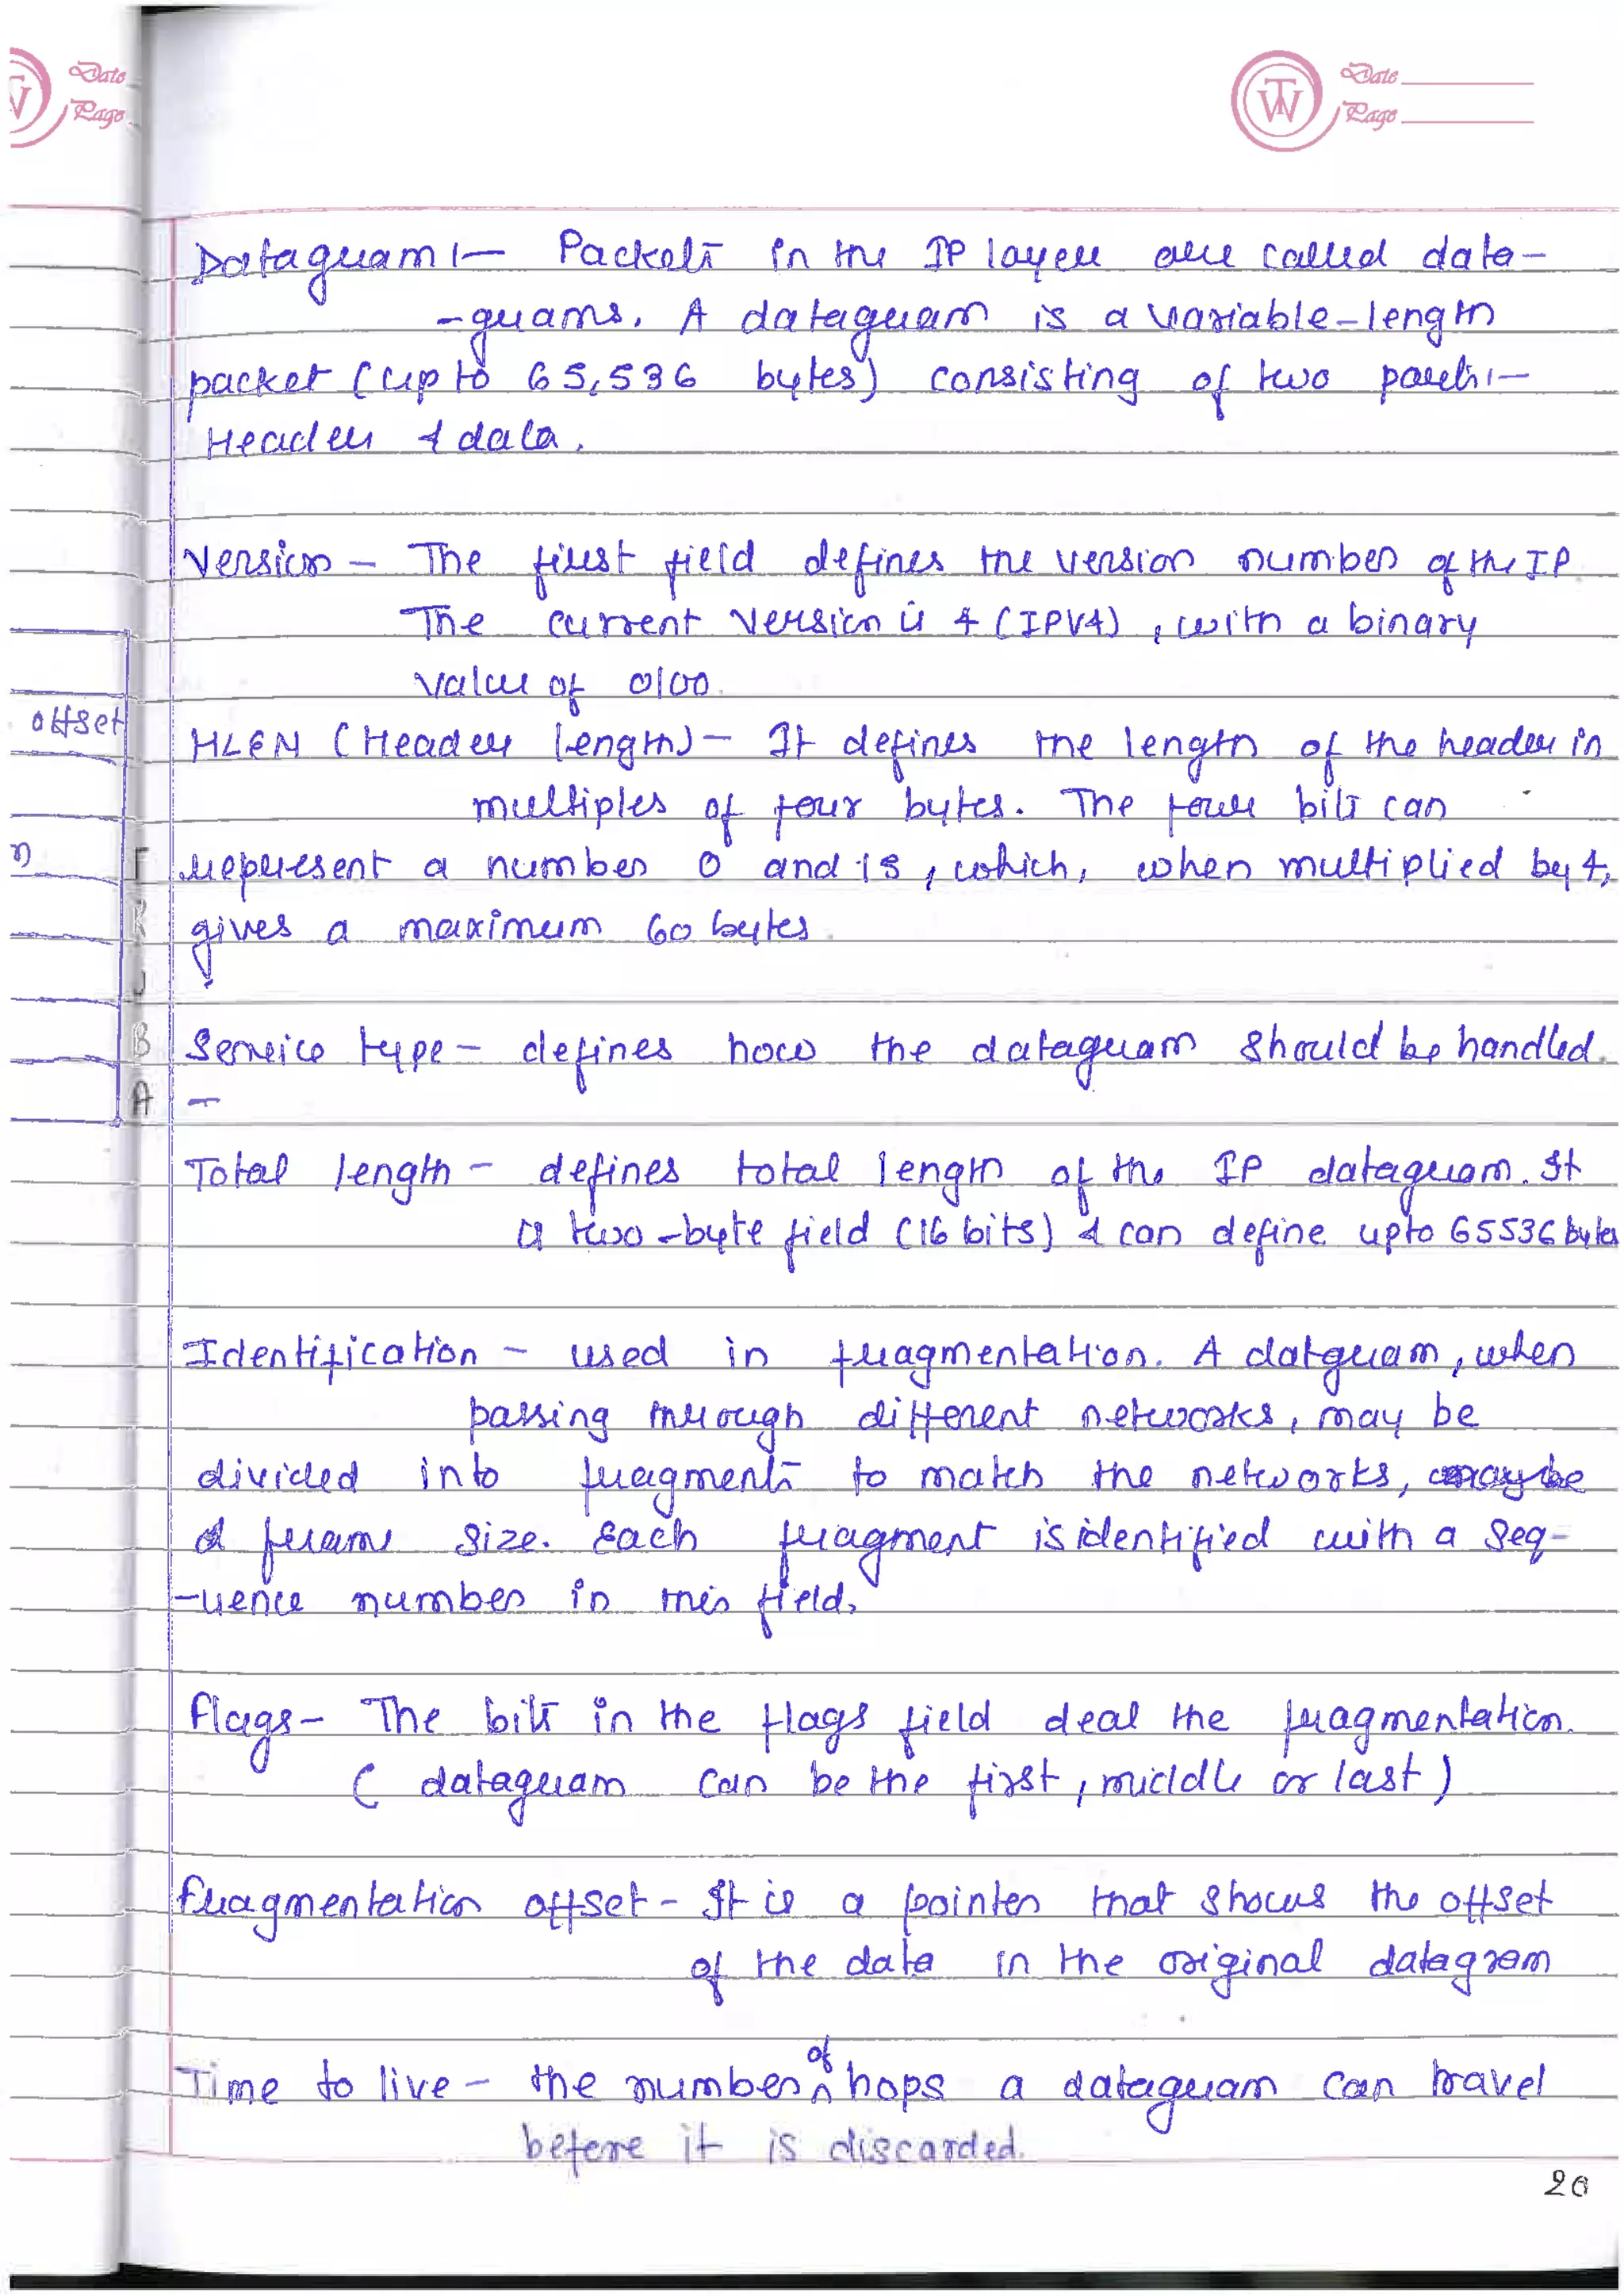 Date
Page
Date
Page
Datagram :- Packets in the IP layer are called data-
-grams. A datagram is a variable-length
packet (up to 65,536 bytes) consisting of two parts :-
Header & data.
Version - The first field defines the version number of the IP
The current version is 4 (IPV4), with a binary
value of 0100.
offset
HLEN (Header length) - It defines the length of the header in
multiples of four bytes. The four bits can
n
F
represent a number 0 and 15, which, when multiplied by 4,
R
gives a maximum 60 bytes.
J
B
Service type - defines how the datagram should be handled.
A
-
Total length - defines total length of the IP datagram. It
is two-byte field (16 bits) & can define upto 65536 bytes
Identification - used in fragmentation. A datgram, when
passing through different networks, may be
divided into fragments to match the networks,
frame size. Each fragment is identified with a seq-
-uence number in this field.
Flags - The bits in the flags field deal the fragmentation.
( datagram can be the first, middle or last )
Fragmentation offset - It is a pointer that shows the offset
of the data in the original datagram
Time to live - the number of hops a datagram can travel
before it is discarded.
20